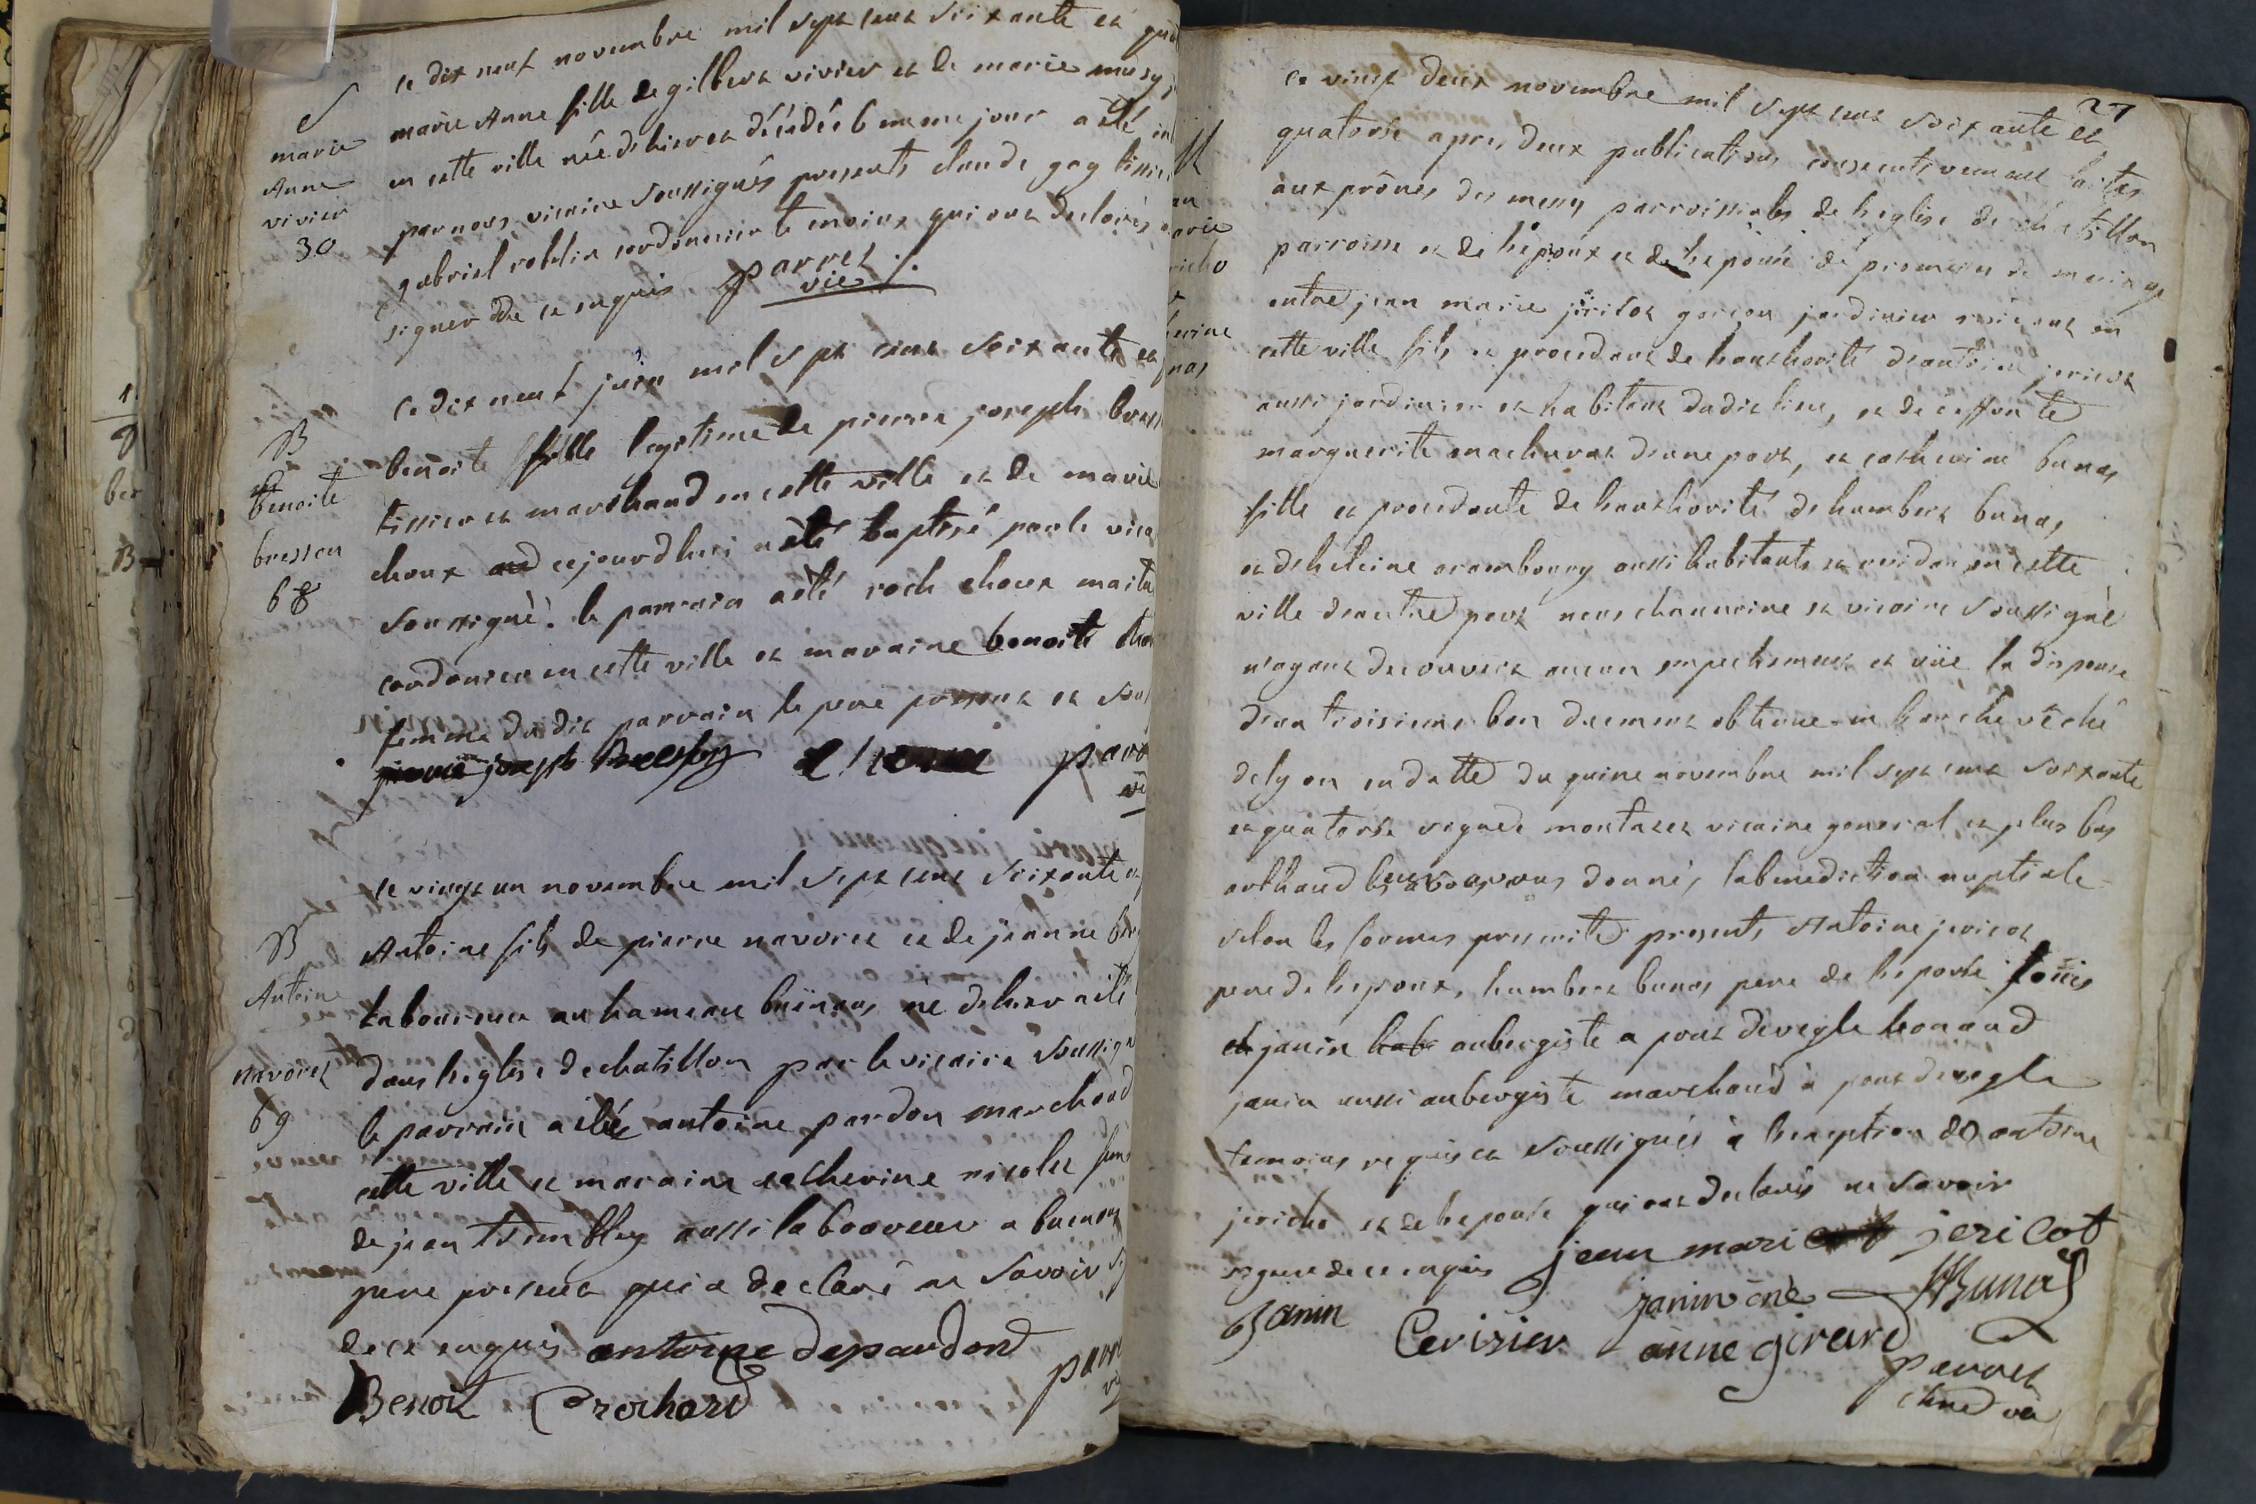 ce dix neuf novembre mil sept cent soixante et
S
marie
Anne
vivier
30
marie Anne fille de gilbert vivier et de marie musy
en cette ville née d'hier et décédée le meme jour a été in
par nous vicaire soussignés presents claude gay tissier
gabriel roblin cordonnier temoins qui ont declarés
signer de ce enquis parret
vic
ce dix neuf juin mil sept cent soixante et
B
benoite
bressou
68
benoite fille legitime de pierre joseph bress
tissier et marchand en cette ville et de marie
choux cejourdhui a été baptisé par le vica
soussigné. le parrain a été roch choux maitre
cordonier en cette ville et maraine benoite
femme dudit parrain le pere present et sous
pierre joseph parr
vi
ce vingt un novembre mil sept cent soixante et
B
Antoine
navoret
69
Antoine fils de pierre navoret et de jeanne
laboureur au hameau buënans, né d'hier a été
dans l'eglise de chatillon par le vicaire soussigné
le parrain a été antoine pardon marchand
cette ville et maraine catherine nicolet fem
de jean tremblay aussi laboureur a buenans
pere present qui a declaré ne savoir si
de ce enquis antoine depaudon
Benoit Brochard parr
vi
27
ce vingt deux novembre mil sept cent soixante et
quatorse apres deux publications consecutivement faites
aux prônes des messes parroissiales de l'eglise de chatillon
parroisse et de l'epoux et de l'epouse de promesses de mariage
entre jean marie jericot garçon jardinier residant en
cette ville fils et procedant de l'authorité d'antoine jericot
aussi jardinier et habitant dudit lieu, et de deffunte
marguerite machurat d'une part, et catherine bunas
fille et procedante de l'authorité d'humbert bunas
et d'heleine arambourg aussi habitants et residans en cette
ville d'autre part nous chanoine et vicaire soussigné
n'ayant decouvert aucun empechement et vüe la dispense
d'un troisieme ban duement obtenue en l'archevêché
de lyon en datte du quine novembre mil sept cent soixante
et quatorse signée montazet vicaire general et plus bas
arthaud leur avons donnés la benediction nuptiale
selon les formes prescrite presents Antoine jericot
pere de l'epoux, humbert bunas pere de l'epouse, louis
janin aubergiste a pont devegle leonard
janin aussi aubergiste marchand à pont devegle
temoins requis et soussignés à l'exception d'antoine
jericho et de l'epouse qui ont declarés ne savoir
signer de ce enquis jean marie jericot
Janin janin ainé HBunas
Cerisier anne girard
parret
chne vic